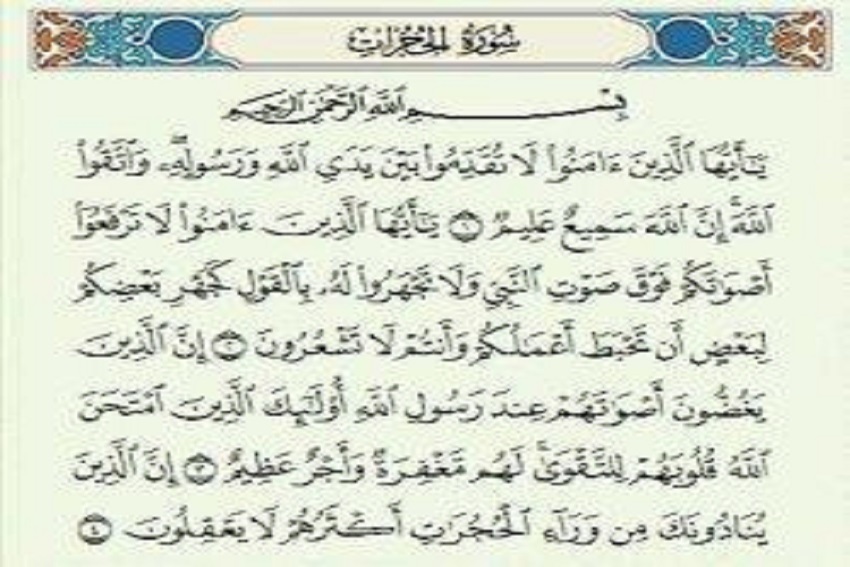 سُورَةُ الحُجُرَاتِ
بِسْمِ ٱللَّهِ ٱلرَّحْمَٰنِ ٱلرَّحِيمِ
يَٰٓأَيُّهَا ٱلَّذِينَ ءَامَنُوا۟ لَا تُقَدِّمُوا۟ بَيْنَ يَدَيِ ٱللَّهِ وَرَسُولِهِۦ ۖ وَٱتَّقُوا۟
ٱللَّهَ ۚ إِنَّ ٱللَّهَ سَمِيعٌ عَلِيمٌ ١ يَٰٓأَيُّهَا ٱلَّذِينَ ءَامَنُوا۟ لَا تَرْفَعُوٓا۟
أَصْوَٰتَكُمْ فَوْقَ صَوْتِ ٱلنَّبِىِّ وَلَا تَجْهَرُوا۟ لَهُۥ بِٱلْقَوْلِ كَجَهْرِ بَعْضِكُمْ
لِبَعْضٍ أَن تَحْبَطَ أَعْمَٰلُكُمْ وَأَنتُمْ لَا تَشْعُرُونَ ٢ إِنَّ ٱلَّذِينَ
يَغُضُّونَ أَصْوَٰتَهُمْ عِندَ رَسُولِ ٱللَّهِ أُو۟لَٰٓئِكَ ٱلَّذِينَ ٱمْتَحَنَ
ٱللَّهُ قُلُوبَهُمْ لِلتَّقْوَىٰ ۚ لَهُم مَّغْفِرَةٌ وَأَجْرٌ عَظِيمٌ ٣ إِنَّ ٱلَّذِينَ
يُنَادُونَكَ مِن وَرَآءِ ٱلْحُجُرَٰتِ أَكْثَرُهُمْ لَا يَعْقِلُونَ ٤